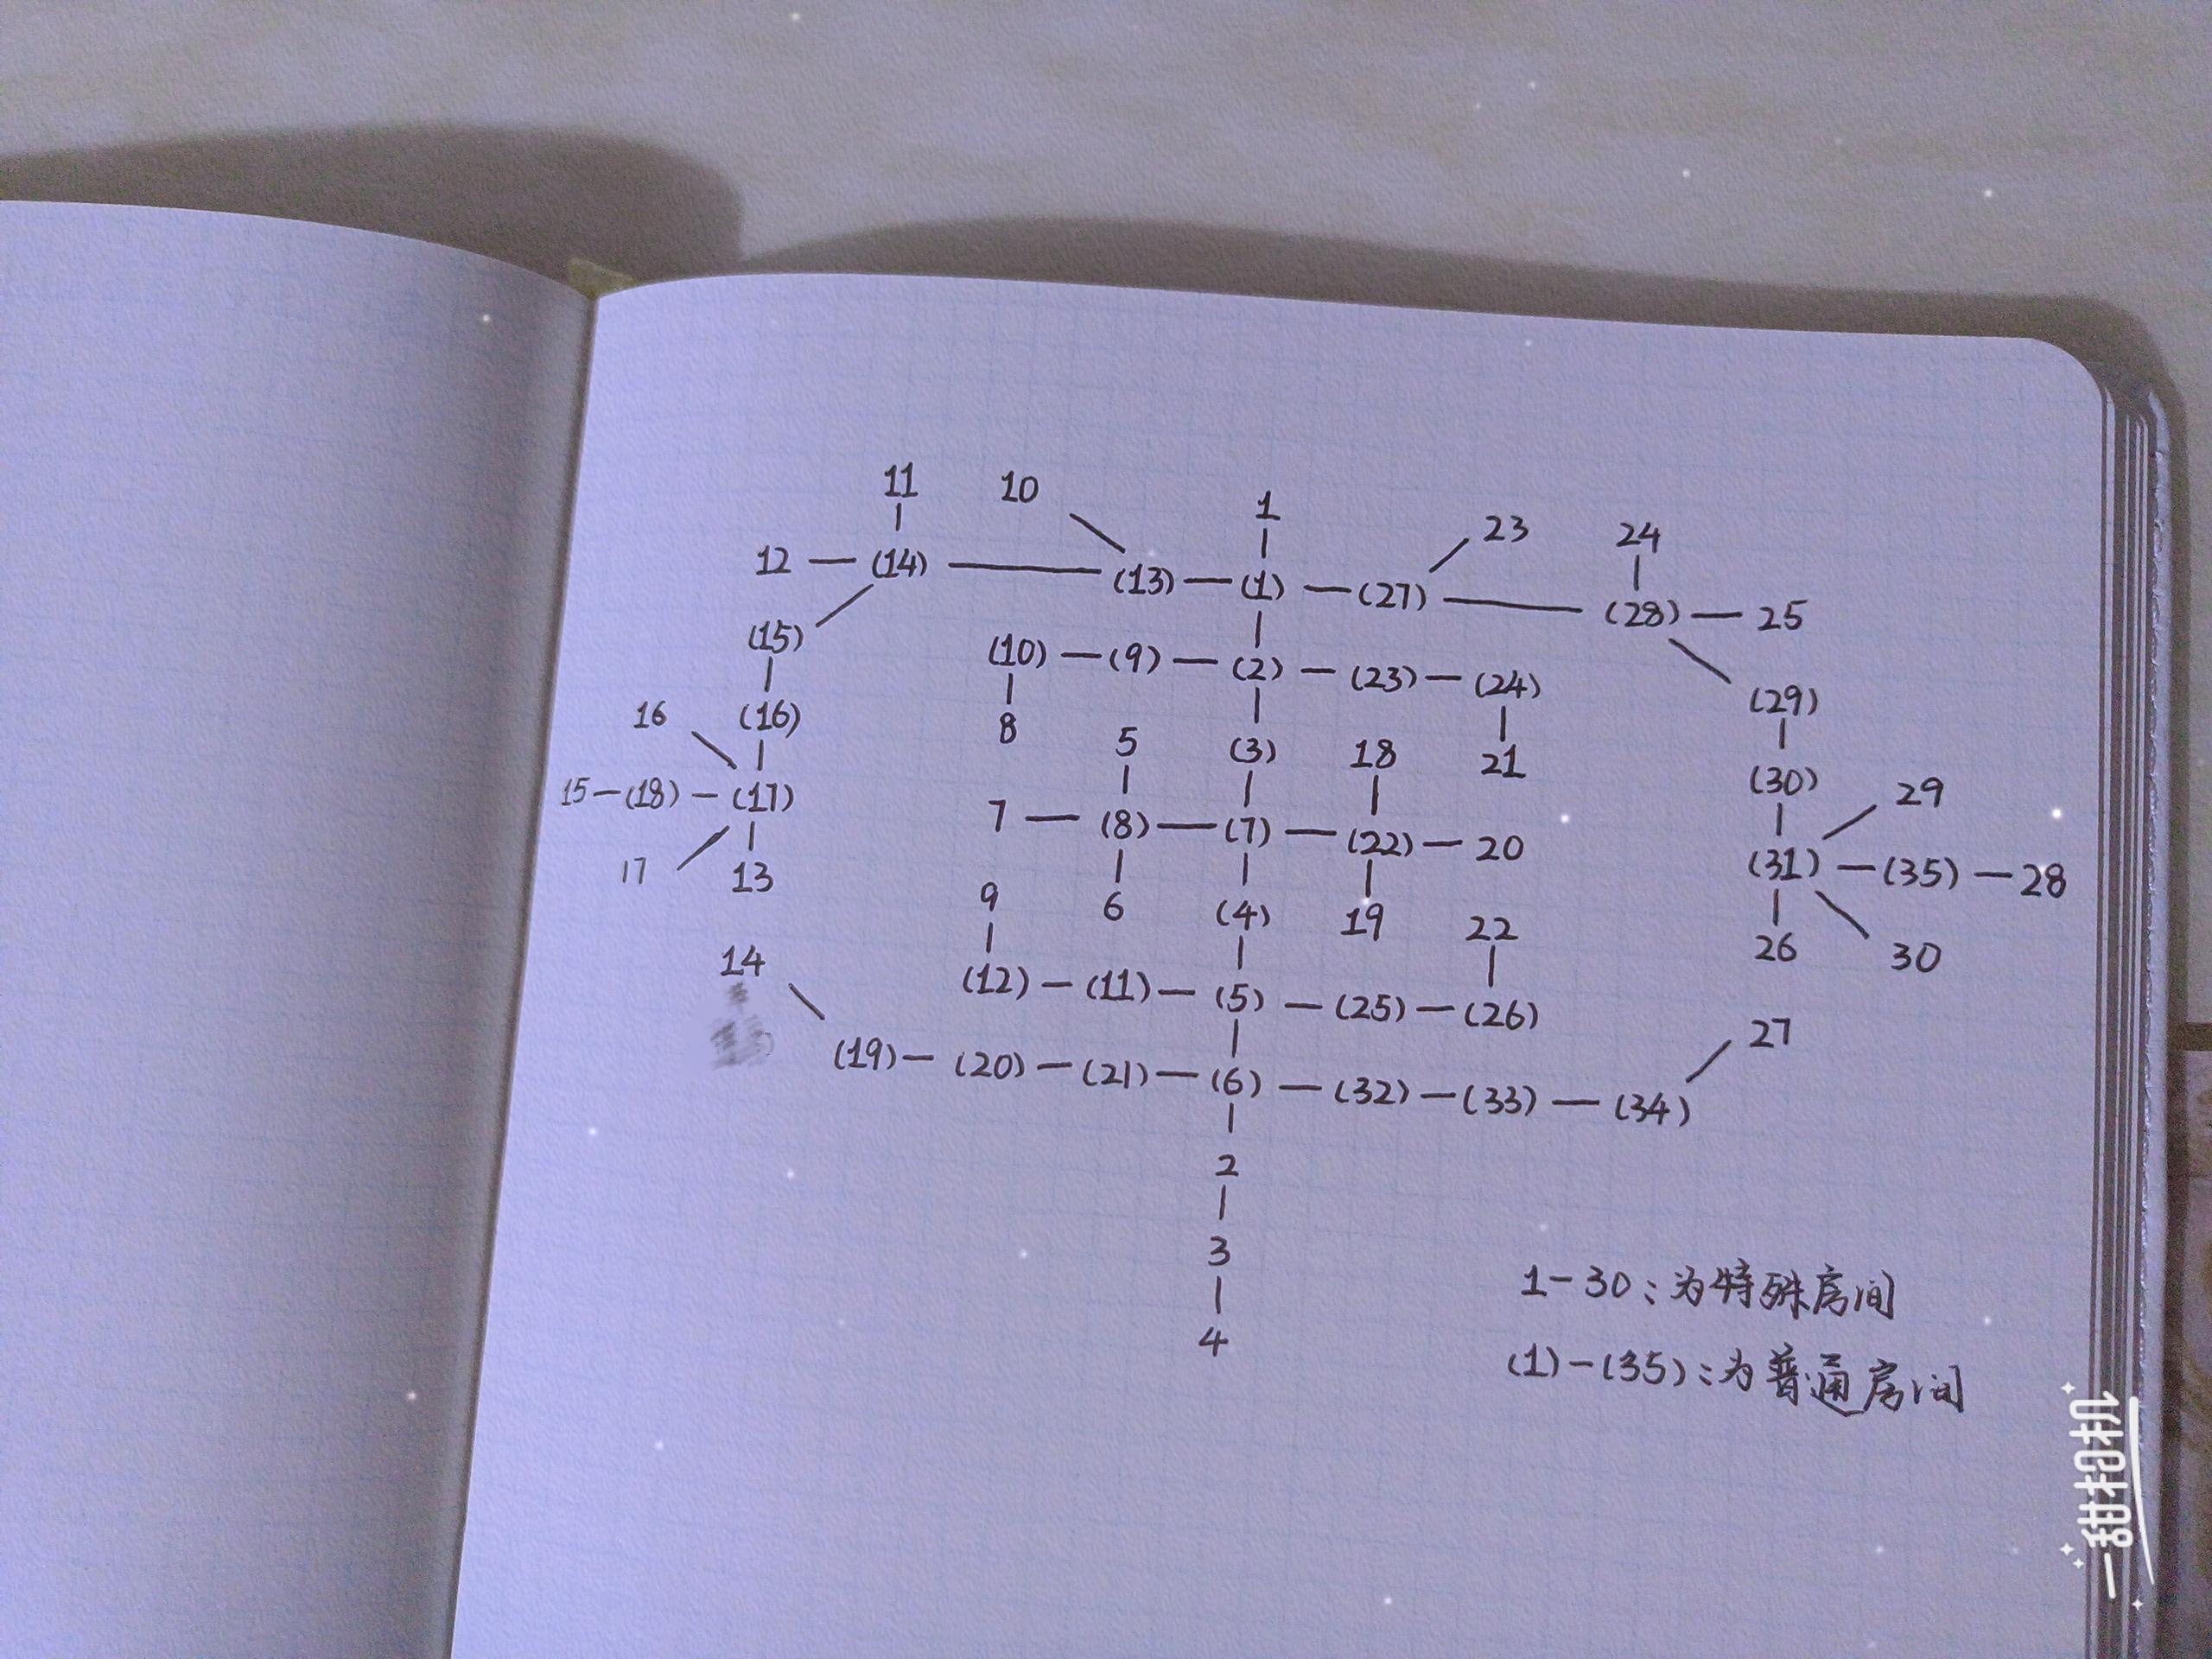 11 10 1 23 24
12 — (14) — (13) — (1) — (27) — (28) — 25
(15) (10) — (9) — (2) — (23) — (24) (29)
16 (16) 8 5 (3) 18 21 (30) 29
15 — (18) — (17) 7 — (8) — (7) — (22) — 20 (31) — (35) — 28
17 13 9 6 (4) 19 22 26 30
14 (12) — (11) — (5) — (25) — (26) 27
(19) — (20) — (21) — (6) — (32) — (33) — (34)
2
3
4
1-30:为特殊房间
(1)-(35):为普通房间
一甜相机